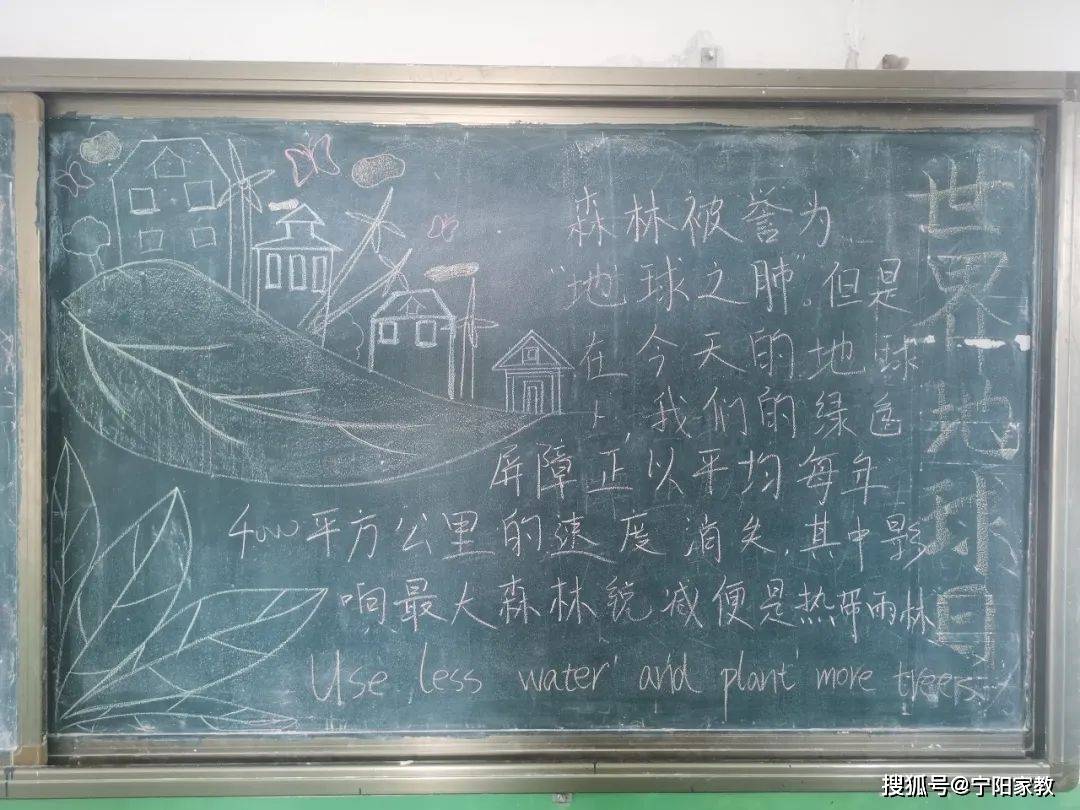 世界地球日
森林被誉为
"地球之肺"。但是
在今天的地球
上,我们的绿色
屏障正以平均每年
4000平方公里的速度消失.其中影
响最大森林锐减便是热带雨林
Use less water and plant more trees
搜狐号@宁阳家教